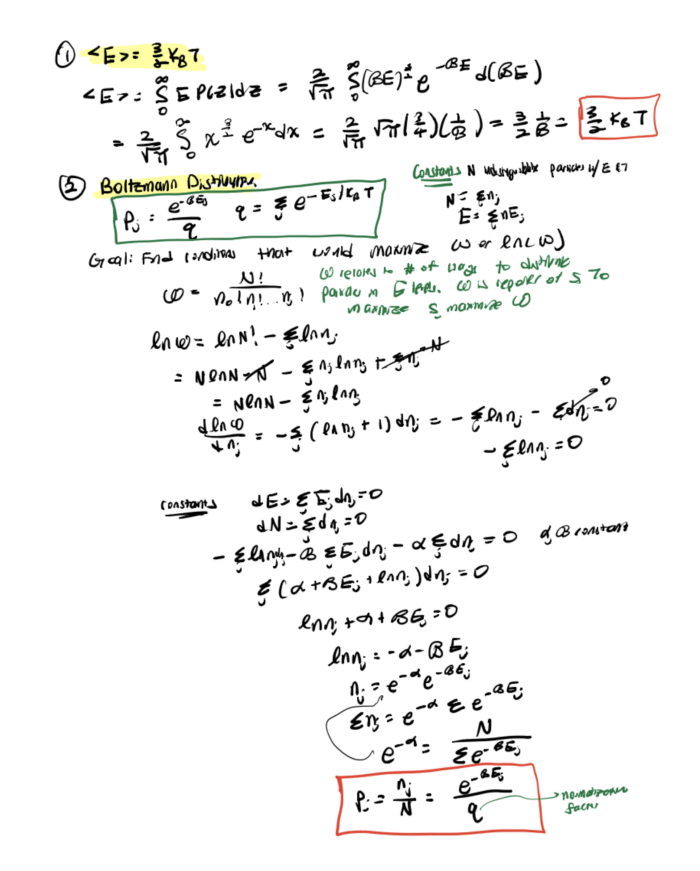 ① <E> = 3/2 K_B T
<E> = ∫₀^∞ E P(z)dz = 2/√π ∫₀^∞ (βE)^½ e^(-βE) d(βE)
= 2/√π ∫₀^∞ x^(3/2) e^(-x) dx = 2/√π √π (3/4)(1/β) = 3/2 1/β = 3/2 K_B T
② Boltzmann Distribution
Constants N indistinguishable particles w/ E &
P_j = e^(-βE_j)/q q = Σ_j e^(-E_j/K_B T)
N = Σn_j
E = Σ_j nE_j
Goal: Find conditions that would maximize ω or ln(ω)
ω = N!/(n₀! n₁! ... n_j!)
ω relates to # of ways to distribute particles in E levels. ω is reporter of S. To maximize S, maximize ω
ln ω = ln N! - Σ_j ln n_j
= N ln N - N - Σ_j n_j ln n_j + Σ_j n_j N
= N ln N - Σ_j n_j ln n_j
d ln ω/d n_j = -Σ_j (ln n_j + 1) dn_j = - Σ_j ln n_j - Σ_j dn_j = 0
0
- Σ_j ln n_j = 0
constants dE = Σ_j E_j dn_j = 0
dN = Σ_j dn_j = 0
- Σ_j ln n_j - β Σ_j E_j dn_j - α Σ_j dn_j = 0 α, β constant
Σ_j (α + βE_j + ln n_j) dn_j = 0
ln n_j + α + βE_j = 0
ln n_j = -α - βE_j
n_j = e^(-α) e^(-βE_j)
Σn_j = e^(-α) Σ e^(-βE_j)
e^(-α) = N/(Σ e^(-βE_j))
P_j = n_j/N = e^(-βE_j)/q
normalization factor